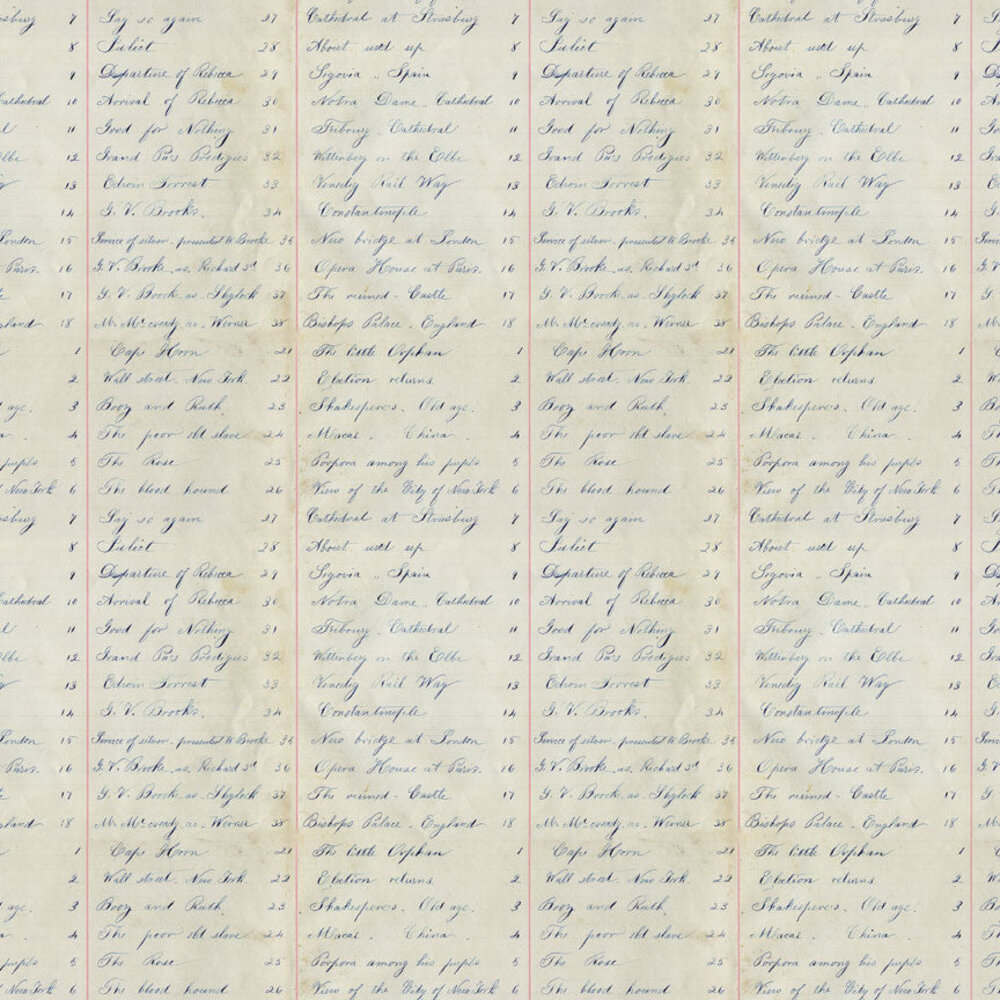 asburg 7 Say so again 27 Cathedral at Strasburg 7 Say so again 27 Cathedral at Strasburg 7
8 Sulict 28 About used up 8 Sulict 28 About used up 8
9 Departure of Rebecca 29 Segovia „ Spain 9 Departure of Rebecca 29 Segovia „ Spain 9
Cathedral 10 Arrival of Rebecca 30 Notra Dame „ Cathedral 10 Arrival of Rebecca 30 Notra Dame „ Cathedral 10
11 Good for Nothing 31 Fribourg . Cathedral 11 Good for Nothing 31 Fribourg . Cathedral 11
Elbe 12 Grand Pa's Prodigies 32 Wittenberg on the Elbe 12 Grand Pa's Prodigies 32 Wittenberg on the Elbe 12
13 Edwin Forrest 33 Venedig Rail Way 13 Edwin Forrest 33 Venedig Rail Way 13
14 G. V. Brooks. 34 Constantinople 14 G. V. Brooks. 34 Constantinople 14
London 15 Service of silver - presented to Brooke 35 New bridge at London 15 Service of silver - presented to Brooke 35 New bridge at London 15
Paris. 16 G. V. Brooke. as. Richard 3d 36 Opera House at Paris. 16 G. V. Brooke. as. Richard 3d 36 Opera House at Paris. 16
17 G. V. Brooke as - Shylock 37 The ruined - Castle 17 G. V. Brooke as - Shylock 37 The ruined - Castle 17
gland 18 Mr Mccready. as - Werner 38 Bishops Palace . England 18 Mr Mccready. as - Werner 38 Bishops Palace . England 18
1 Cape Horn 21 The little Orphan 1 Cape Horn 21 The little Orphan 1
2 Wall street. New York. 22 Election returns 2 Wall street. New York. 22 Election returns 2
age. 3 Booz and Ruth. 23 Shakesperes. Old age. 3 Booz and Ruth. 23 Shakesperes. Old age. 3
4 The poor old slave 24 Macas . China 4 The poor old slave 24 Macas . China 4
pupils 5 The Rose 25 Porpora among his pupils 5 The Rose 25 Porpora among his pupils 5
of New York 6 The blood hound 26 View of the City of New York 6 The blood hound 26 View of the City of New York 6
asburg 7 Say so again 27 Cathedral at Strasburg 7 Say so again 27 Cathedral at Strasburg 7
8 Sulict 28 About used up 8 Sulict 28 About used up 8
9 Departure of Rebecca 29 Segovia „ Spain 9 Departure of Rebecca 29 Segovia „ Spain 9
Cathedral 10 Arrival of Rebecca 30 Notra Dame „ Cathedral 10 Arrival of Rebecca 30 Notra Dame „ Cathedral 10
11 Good for Nothing 31 Fribourg . Cathedral 11 Good for Nothing 31 Fribourg . Cathedral 11
Elbe 12 Grand Pa's Prodigies 32 Wittenberg on the Elbe 12 Grand Pa's Prodigies 32 Wittenberg on the Elbe 12
13 Edwin Forrest 33 Venedig Rail Way 13 Edwin Forrest 33 Venedig Rail Way 13
14 G. V. Brooks. 34 Constantinople 14 G. V. Brooks. 34 Constantinople 14
London 15 Service of silver - presented to Brooke 35 New bridge at London 15 Service of silver - presented to Brooke 35 New bridge at London 15
Paris. 16 G. V. Brooke. as. Richard 3d 36 Opera House at Paris. 16 G. V. Brooke. as. Richard 3d 36 Opera House at Paris. 16
17 G. V. Brooke as - Shylock 37 The ruined - Castle 17 G. V. Brooke as - Shylock 37 The ruined - Castle 17
gland 18 Mr Mccready. as - Werner 38 Bishops Palace . England 18 Mr Mccready. as - Werner 38 Bishops Palace . England 18
1 Cape Horn 21 The little Orphan 1 Cape Horn 21 The little Orphan 1
2 Wall street. New York. 22 Election returns 2 Wall street. New York. 22 Election returns 2
age. 3 Booz and Ruth. 23 Shakesperes. Old age. 3 Booz and Ruth. 23 Shakesperes. Old age. 3
4 The poor old slave 24 Macas . China 4 The poor old slave 24 Macas . China 4
pupils 5 The Rose 25 Porpora among his pupils 5 The Rose 25 Porpora among his pupils 5
of New York 6 The blood hound 26 View of the City of New York 6 The blood hound 26 View of the City of New York 6